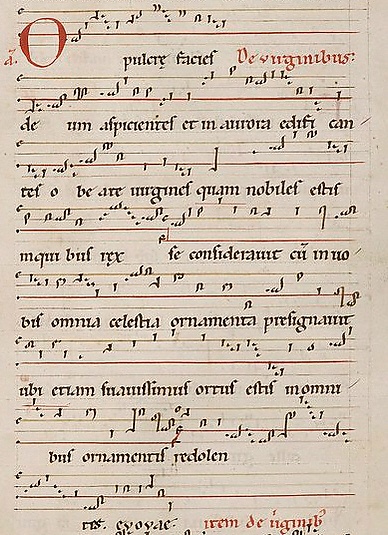 A. O pulcrę facies De virginibus:
de um aspicientes et in aurora edifi can
tes o be ate virgines quam nobiles estis
inqui bus rex se consideravit cū in vo
bis omnia celestia ornamenta presignavit
ubi etiam suavissimus ortus estis in omni
bus ornamentis redolen
tes. evovae. item de virginib